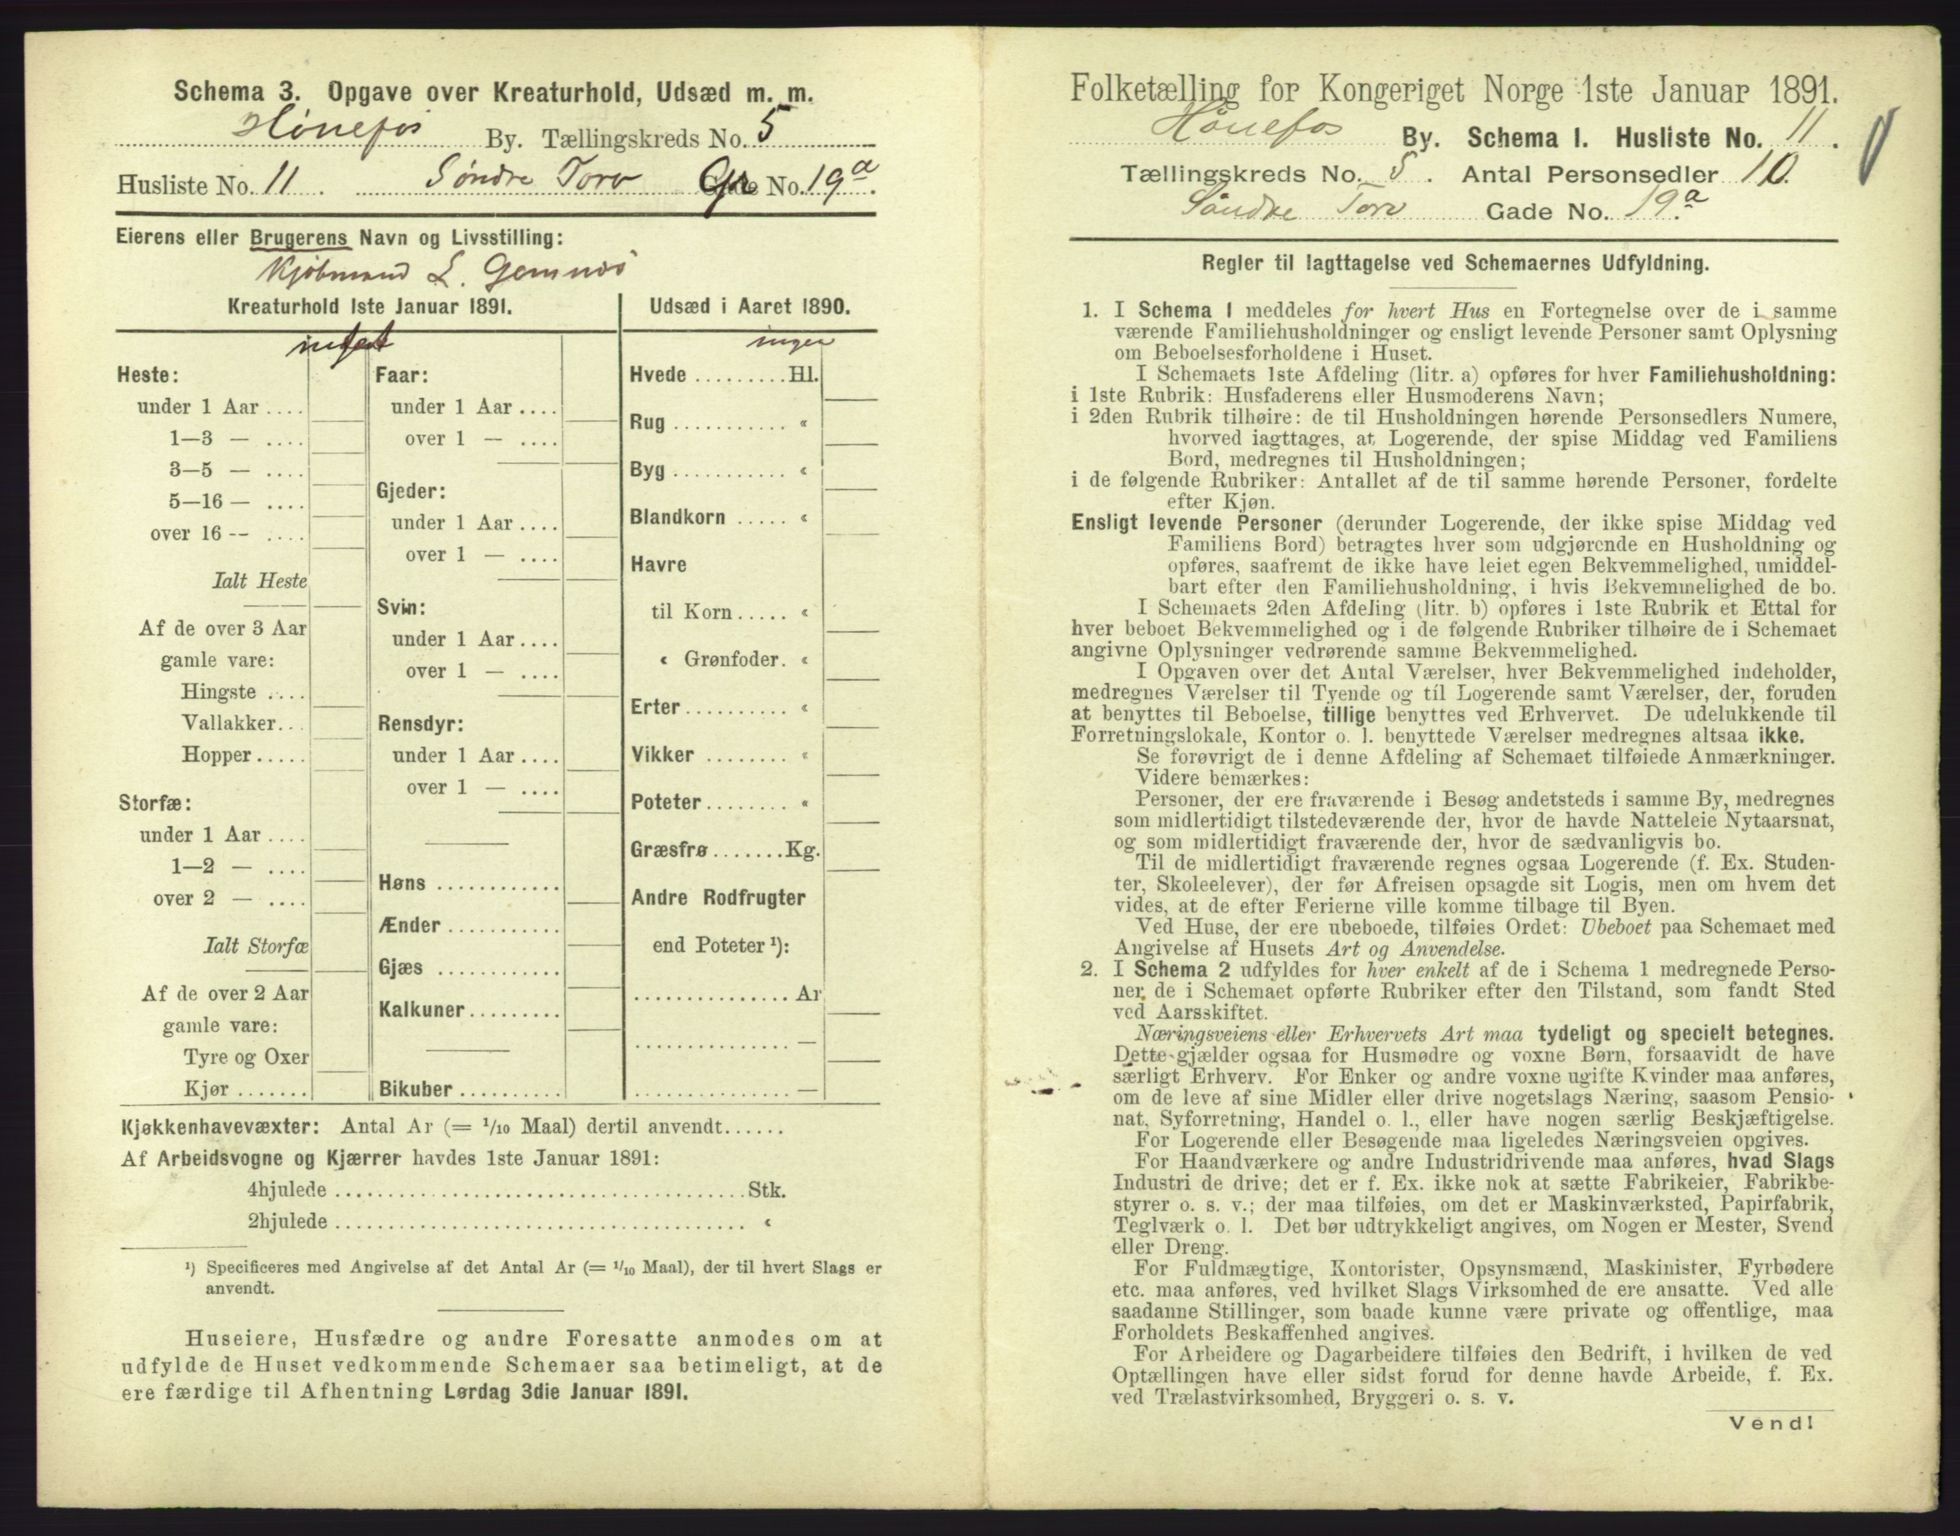 Schema 3. Opgave over Kreaturhold, Udsæd m. m.
Hønefos By. Tællingskreds No. 5
Husliste No. 11. Søndre Torv Gr No. 19a.
Eierens eller Brugerens Navn og Livsstilling:
Kjøbmand L. Gomnæs
Kreaturhold 1ste Januar 1891.
intet
Heste:
under 1 Aar ....
1—3 — ....
3—5 — ....
5—16 — ....
over 16 -- ....
Ialt Heste
Af de over 3 Aar
gamle vare:
Hingste ....
Vallakker...
Hopper.....
Storfæ:
under 1 Aar ....
1—2 — ....
over 2 — ....
Ialt Storfæ
Af de over 2 Aar
gamle vare:
Tyre og Oxer
Kjør .......
Faar:
under 1 Aar ....
over 1 — ....
Gjeder:
under 1 Aar ....
over 1 — ....
Svin:
under 1 Aar ....
over 1 — ....
Rensdyr:
under 1 Aar ....
over 1 — ....
Høns ............
Ænder ...........
Gjæs ............
Kalkuner.........
Bikuber ..........
Udsæd i Aaret 1890.
ingen
Hvede .........Hl.
Rug ........... «
Byg ........... «
Blandkorn ..... «
Havre
til Korn..... «
« Grønfoder. «
Erter.......... «
Vikker ........ «
Poteter........ «
Græsfrø.......Kg.
Andre Rodfrugter
end Poteter ¹):
............... Ar
............... —
............... —
Kjøkkenhavevæxter: Antal Ar (= 1/10 Maal) dertil anvendt......
Af Arbeidsvogne og Kjærrer havdes 1ste Januar 1891:
4hjulede ....................................... Stk.
2hjulede ....................................... «
¹) Specificeres med Angivelse af det Antal Ar (= 1/10 Maal), der til hvert Slags er
anvendt.
Huseiere, Husfædre og andre Foresatte anmodes om at
udfylde de Huset vedkommende Schemaer saa betimeligt, at de
ere færdige til Afhentning Lørdag 3die Januar 1891.
Folketælling for Kongeriget Norge 1ste Januar 1891.
Hønefos By. Schema 1. Husliste No. 11.
Tællingskreds No. 5. Antal Personsedler 10.
Søndre Torv Gade No. 19a
Regler til Iagttagelse ved Schemaernes Udfyldning.
1. I Schema 1 meddeles for hvert Hus en Fortegnelse over de i samme
værende Familiehusholdninger og ensligt levende Personer samt Oplysning
om Beboelsesforholdene i Huset.
I Schemaets 1ste Afdeling (litr. a) opføres for hver Familiehusholdning:
i 1ste Rubrik: Husfaderens eller Husmoderens Navn;
i 2den Rubrik tilhøire: de til Husholdningen hørende Personsedlers Numere,
hvorved iagttages, at Logerende, der spise Middag ved Familiens
Bord, medregnes til Husholdningen;
i de følgende Rubriker: Antallet af de til samme hørende Personer, fordelte
efter Kjøn.
Ensligt levende Personer (derunder Logerende, der ikke spise Middag ved
Familiens Bord) betragtes hver som udgjørende en Husholdning og
opføres, saafremt de ikke have leiet egen Bekvemmelighed, umiddel-
bart efter den Familiehusholdning, i hvis Bekvemmelighed de bo.
I Schemaets 2den Afdeling (litr. b) opføres i 1ste Rubrik et Ettal for
hver beboet Bekvemmelighed og i de følgende Rubriker tilhøire de i Schemaet
angivne Oplysninger vedrørende samme Bekvemmelighed.
I Opgaven over det Antal Værelser, hver Bekvemmelighed indeholder,
medregnes Værelser til Tyende og til Logerende samt Værelser, der, foruden
at benyttes til Beboelse, tillige benyttes ved Erhvervet. De udelukkende til
Forretningslokale, Kontor o. l. benyttede Værelser medregnes altsaa ikke.
Se forøvrigt de i denne Afdeling af Schemaet tilføiede Anmærkninger.
Videre bemærkes:
Personer, der ere fraværende i Besøg andetsteds i samme By, medregnes
som midlertidigt tilstedeværende der, hvor de havde Natteleie Nytaarsnat,
og som midlertidigt fraværende der, hvor de sædvanligvis bo.
Til de midlertidigt fraværende regnes ogsaa Logerende (f. Ex. Studen-
ter, Skoleelever), der før Afreisen opsagde sit Logis, men om hvem det
vides, at de efter Ferierne ville komme tilbage til Byen.
Ved Huse, der ere ubeboede, tilføies Ordet: Ubeboet paa Schemaet med
Angivelse af Husets Art og Anvendelse.
2. I Schema 2 udfyldes for hver enkelt af de i Schema 1 medregnede Perso-
ner de i Schemaet opførte Rubriker efter den Tilstand, som fandt Sted
ved Aarsskiftet.
Næringsveiens eller Erhvervets Art maa tydeligt og specielt betegnes.
Dette gjælder ogsaa for Husmødre og voxne Børn, forsaavidt de have
særligt Erhverv. For Enker og andre voxne ugifte Kvinder maa anføres,
om de leve af sine Midler eller drive nogetslags Næring, saasom Pensio-
nat, Syforretning, Handel o. l., eller have nogen særlig Beskjæftigelse.
For Logerende eller Besøgende maa ligeledes Næringsveien opgives.
For Haandværkere og andre Industridrivende maa anføres, hvad Slags
Industri de drive; det er f. Ex. ikke nok at sætte Fabrikeier, Fabrikbe-
styrer o. s. v.; der maa tilføies, om det er Maskinværksted, Papirfabrik,
Teglværk o. l. Det bør udtrykkeligt angives, om Nogen er Mester, Svend
eller Dreng.
For Fuldmægtige, Kontorister, Opsynsmænd, Maskinister, Fyrbødere
etc. maa anføres, ved hvilket Slags Virksomhed de ere ansatte. Ved alle
saadanne Stillinger, som baade kunne være private og offentlige, maa
Forholdets Beskaffenhed angives.
For Arbeidere og Dagarbeidere tilføies den Bedrift, i hvilken de ved
Optællingen have eller sidst forud for denne havde Arbeide, f. Ex.
ved Trælastvirksomhed, Bryggeri o. s. v.
Vend!